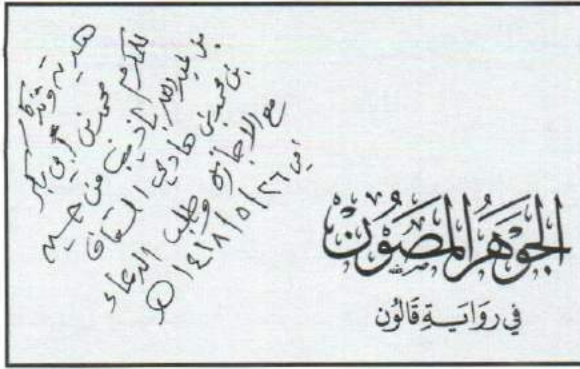 هدية وتذكار
للمكرم محمد بن أبي بكر
بن عبد الله باذيب من
بن محمد بن هادي السقاف
مع الإجازة وطلب الدعاء
في ٢٦/٥/١٤١٨ هـ
الجَوْهَرُ المَصُونُ
في رِوَايَةِ قَالُونَ